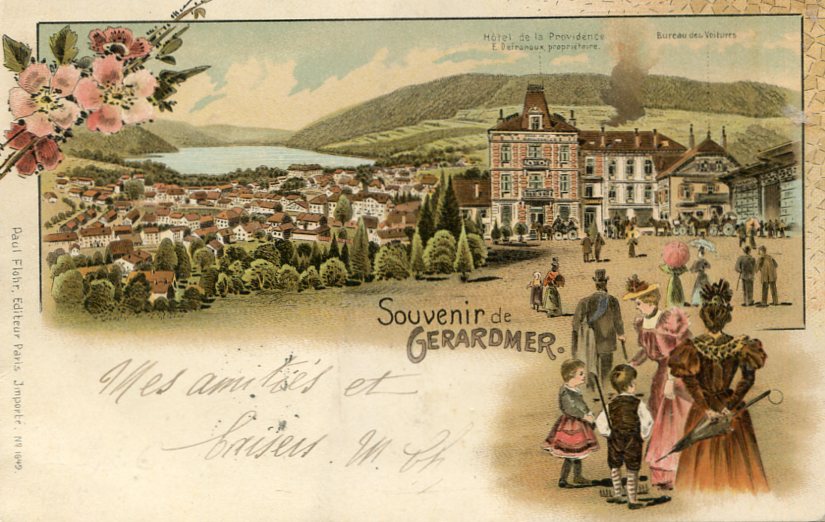 Hôtel de la Providence
E. Defranoux, propriétaire.
Bureau des Voitures
Souvenir de
GERARDMER.
Mes amitiés et
baisers. M.
Paul Flohr, Editeur Paris Importé. No 1649.